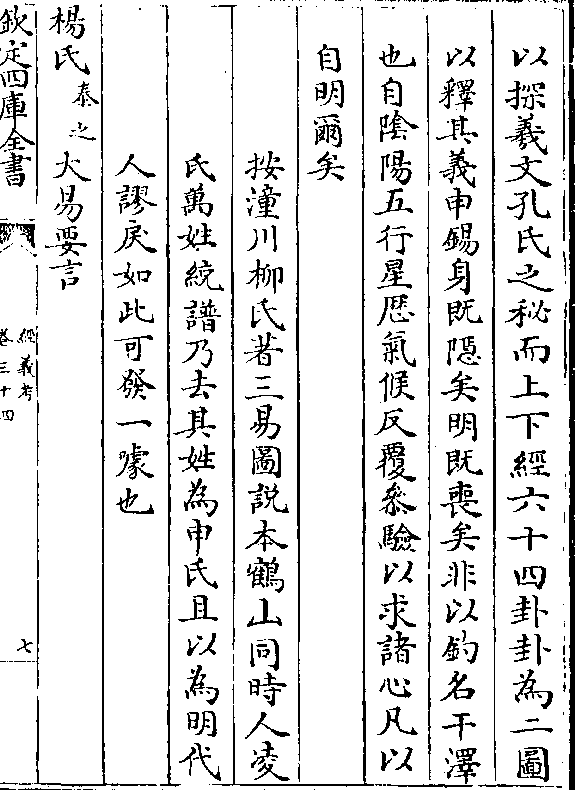 以探羲文孔氏之秘而上下經六十四卦卦為二圖
以釋其義申錫身既隱矣明既喪矣非以釣名干澤
也自陰陽五行星厯氣候反覆叅驗以求諸心凡以
自明爾矣
按潼川柳氏著三易圖說本鶴山同時人凌
氏萬姓統譜乃去其姓為申氏且以為明代
人謬戾如此可發一噱也
楊氏泰之大易要言
欽定四庫全書
經義考
卷三十四
七